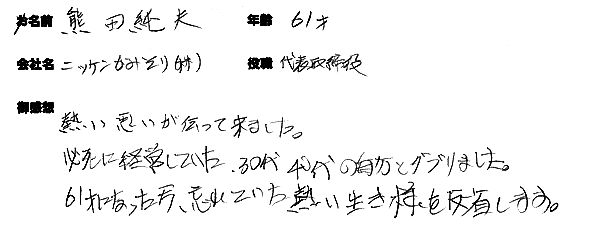 お名前 熊田純夫 年齢 61才
会社名 ニッケンかみそり(株) 役職 代表取締役
御感想
熱い思いが伝って来ました。
必死に経営していた、30代40代の自分とダブりました。
61才になった今、忘れていた熱い生き様を反省します。